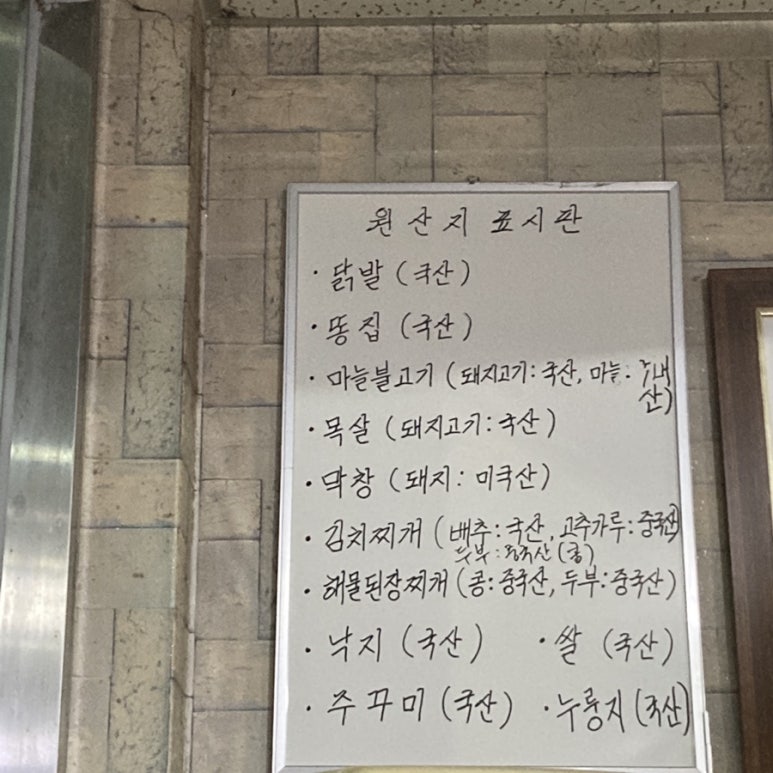 원산지 표시판
· 닭발 (국산)
· 똥집 (국산)
· 마늘불고기 (돼지고기: 국산, 마늘: 국내
산)
· 목살 (돼지고기: 국산)
· 막창 (돼지: 미국산)
· 김치찌개 (배추: 국산, 고추가루: 중국산)
두부: 중국산 (콩)
· 해물된장찌개 (콩: 중국산, 두부: 중국산)
· 낙지 (국산) · 쌀 (국산)
· 주꾸미 (국산) · 누룽지 (국산)